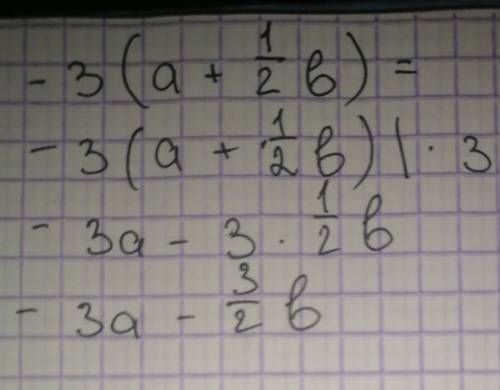 - 3 (a + 1/2 в) =
- 3 (a + 1/2 в) | · 3
- 3a - 3 · 1/2 в
- 3a - 3/2 в